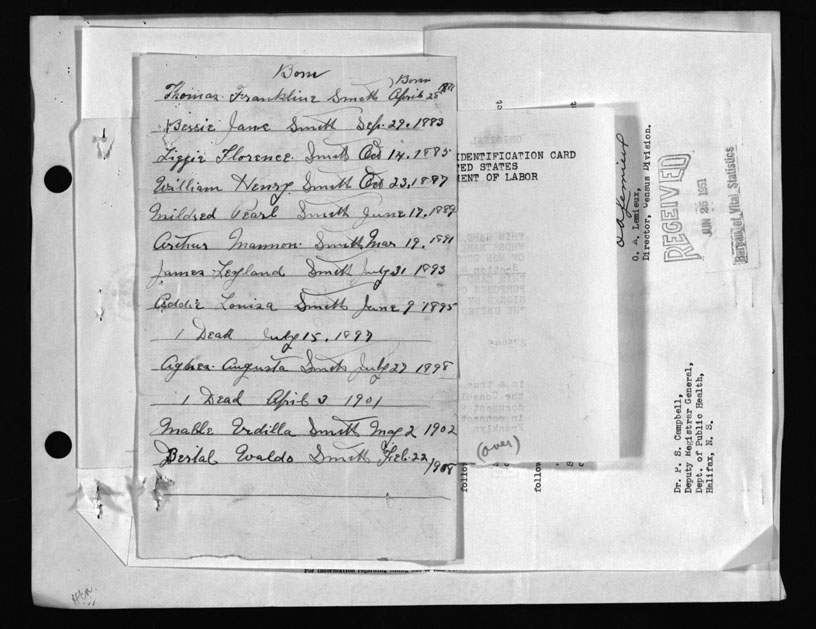 Born
Born
Thomas Frankline Smith April 25
Bessie Jane Smith Sep. 29. 1883
Lizzie Florence Smith Oct 14. 1885
William Henry Smith Oct 23, 1887
Mildred Pearl Smith June 17, 1889
Arthur Mannon Smith Mar 19. 1891
James Leyland Smith July 31 1893
Addie Louisa Smith June 9 1895
1 Dead July 15. 1897
Agnes Augusta Smith July 27 1898
1 Dead April 3 1901
Mable Erdilla Smith May 2 1902
Bertal Evaldo Smith Feb. 22
1908
IDENTIFICATION CARD
TED STATES
MENT OF LABOR
(over)
O. A. Lemieux,
Director, Census Division.
RECEIVED
JUN 26 1951
Bureau of Vital Statistics
Dr. P. S. Campbell,
Deputy Registrar General,
Dept. of Public Health,
Halifax, N. S.
follow
follow